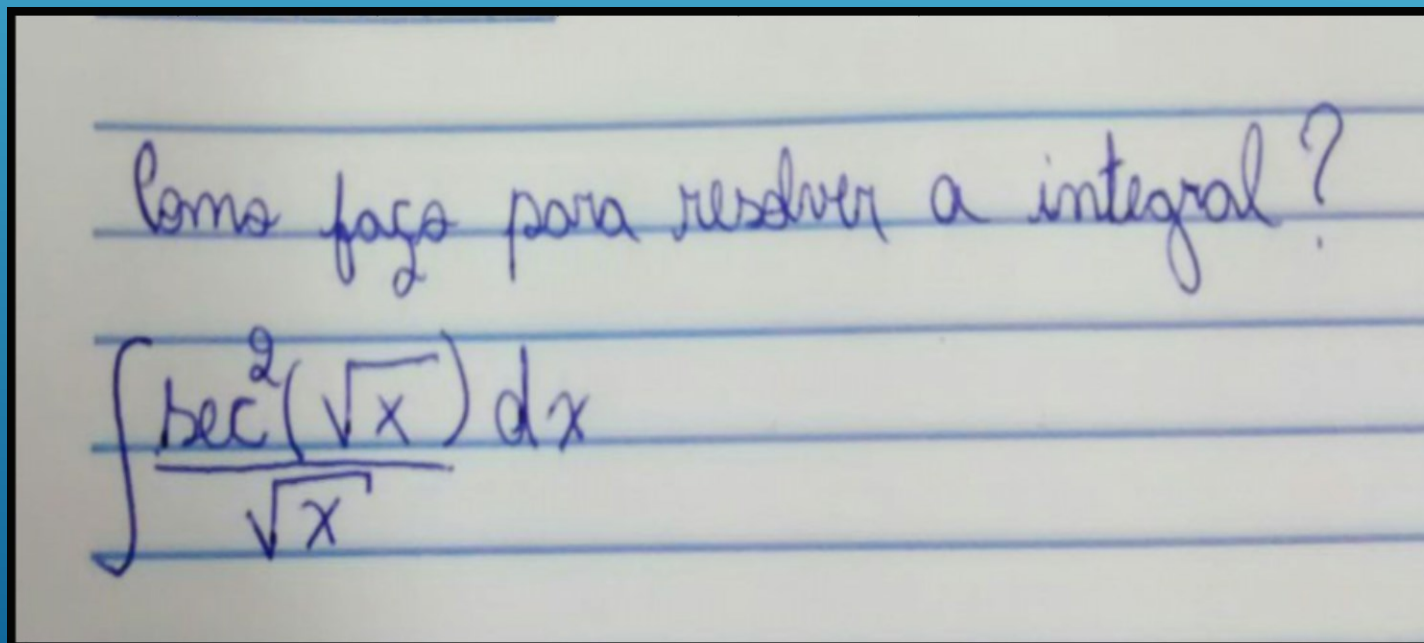 Como faço para resolver a integral?
∫ sec²(√x) dx
√x